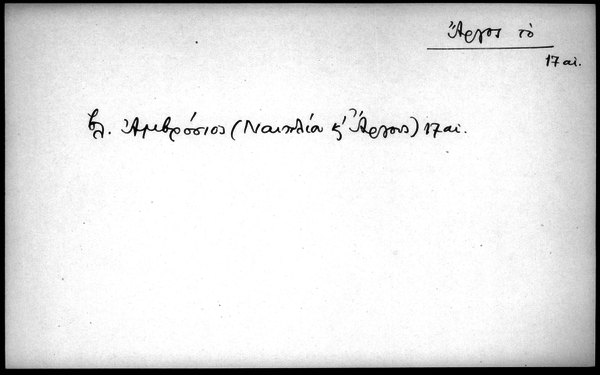 Ἄργος τὸ
17 αἰ.
βλ. Ἀμβρόσιος (Ναυπλία κ' Ἄργους) 17 αἰ.